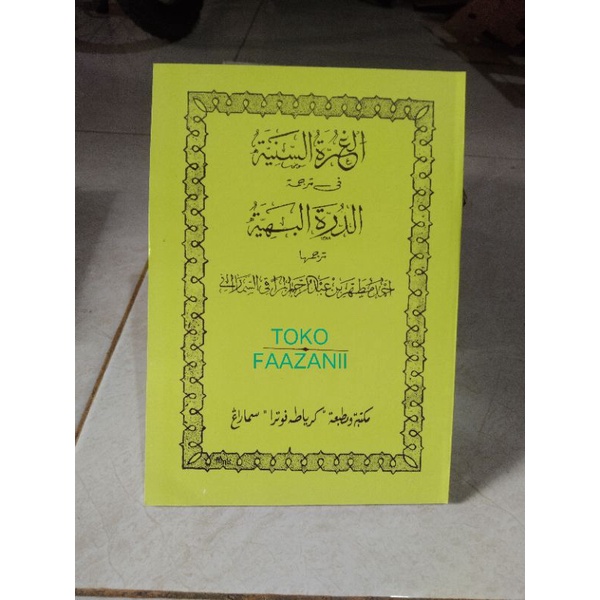 الغرة السنية
في ترجمة
الدرة البهية
ترجمها
احمد مطهر بن عبد الرحمن المراقي السماراني
TOKO
FAAZANII
مكتبة ومطبعة "كرياطه فوترا" سماراڠ